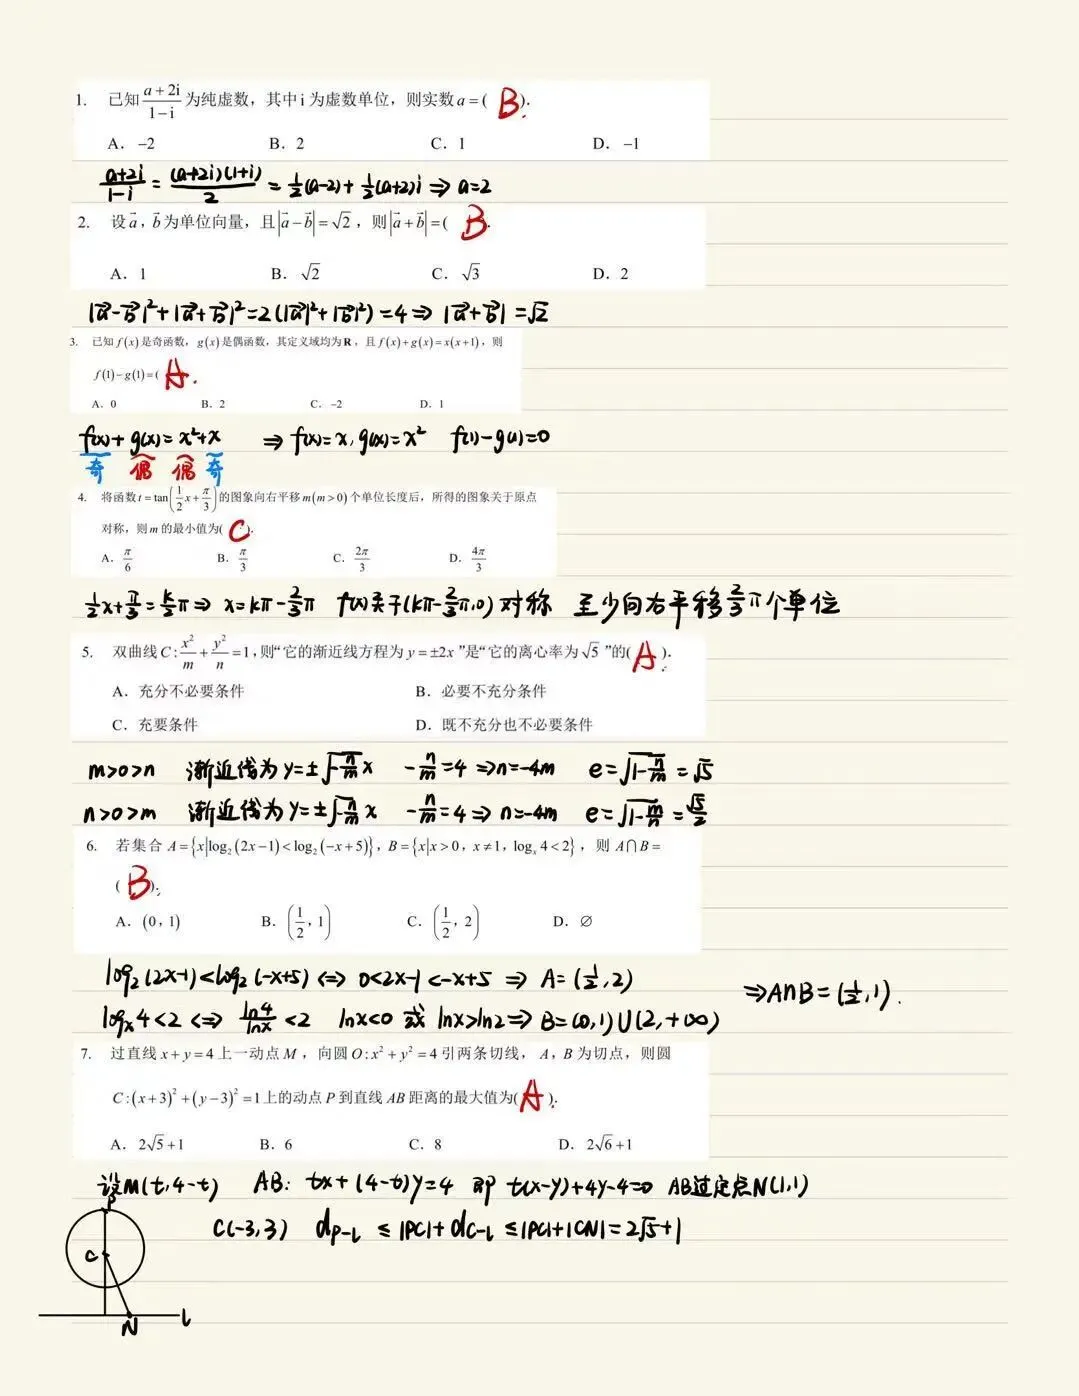 1. 已知 (a+2i)/(1−i) 为纯虚数，其中 i 为虚数单位，则实数 a =( B ).
A. −2 B. 2 C. 1 D. −1
(a+2i)/(1-i) = (a+2i)(1+i)/2 = ½(a-2)+½(a+2)i ⇒ a=2
2. 设 a⃗，b⃗ 为单位向量，且 |a⃗−b⃗|=√2，则 |a⃗+b⃗|=( B .
A. 1 B. √2 C. √3 D. 2
|a⃗-b⃗|²+|a⃗+b⃗|²=2(|a⃗|²+|b⃗|²)=4⇒|a⃗+b⃗|=√2
3. 已知 f(x) 是奇函数，g(x) 是偶函数，其定义域均为 R，且 f(x)+g(x)=x(x+1)，则
f(1)−g(1)=( A.
A. 0 B. 2 C. −2 D. 1
f(x)+g(x)=x²+x ⇒ f(x)=x, g(x)=x² f(1)-g(1)=0
奇 偶 偶 奇
4. 将函数 t=tan(½x+π/3) 的图象向右平移 m(m>0) 个单位长度后，所得的图象关于原点
对称，则 m 的最小值为( C ).
A. π/6 B. π/3 C. 2π/3 D. 4π/3
½x+π/3=k/2π⇒x=kπ-⅔π f(x)关于(kπ-⅔π,0)对称 至少向右平移⅔π个单位
5. 双曲线 C: x²/m+y²/n=1，则“它的渐近线方程为 y=±2x”是“它的离心率为 √5”的( A ).
A. 充分不必要条件 B. 必要不充分条件
C. 充要条件 D. 既不充分也不必要条件
m>0>n 渐近线为y=±√(-n/m)x -n/m=4⇒n=-4m e=√(1-n/m)=√5
n>0>m 渐近线为y=±√(-n/m)x -n/m=4⇒n=-4m e=√(1-m/n)=√5/2
6. 若集合 A={x|log₂(2x−1)<log₂(−x+5)}，B={x|x>0，x≠1，logₓ4<2}，则 A∩B=
( B ).
A. (0，1) B. (½，1) C. (½，2) D. ∅
log₂(2x-1)<log₂(-x+5)⇔0<2x-1<-x+5 ⇒ A=(½,2)
⇒A∩B=(½,1).
logₓ4<2⇔ln4/lnx<2 lnx<0 或 lnx>ln2⇒B=(0,1)∪(2,+∞)
7. 过直线 x+y=4 上一动点 M，向圆 O:x²+y²=4 引两条切线，A，B 为切点，则圆
C:(x+3)²+(y−3)²=1 上的动点 P 到直线 AB 距离的最大值为( A ).
A. 2√5+1 B. 6 C. 8 D. 2√6+1
设M(t,4-t) AB: tx+(4-t)y=4 即 t(x-y)+4y-4=0 AB过定点N(1,1)
C(-3,3) d_{P-l} ≤ |PC|+d_{C-l} ≤|PC|+|CN|=2√5+1
P
C
N l